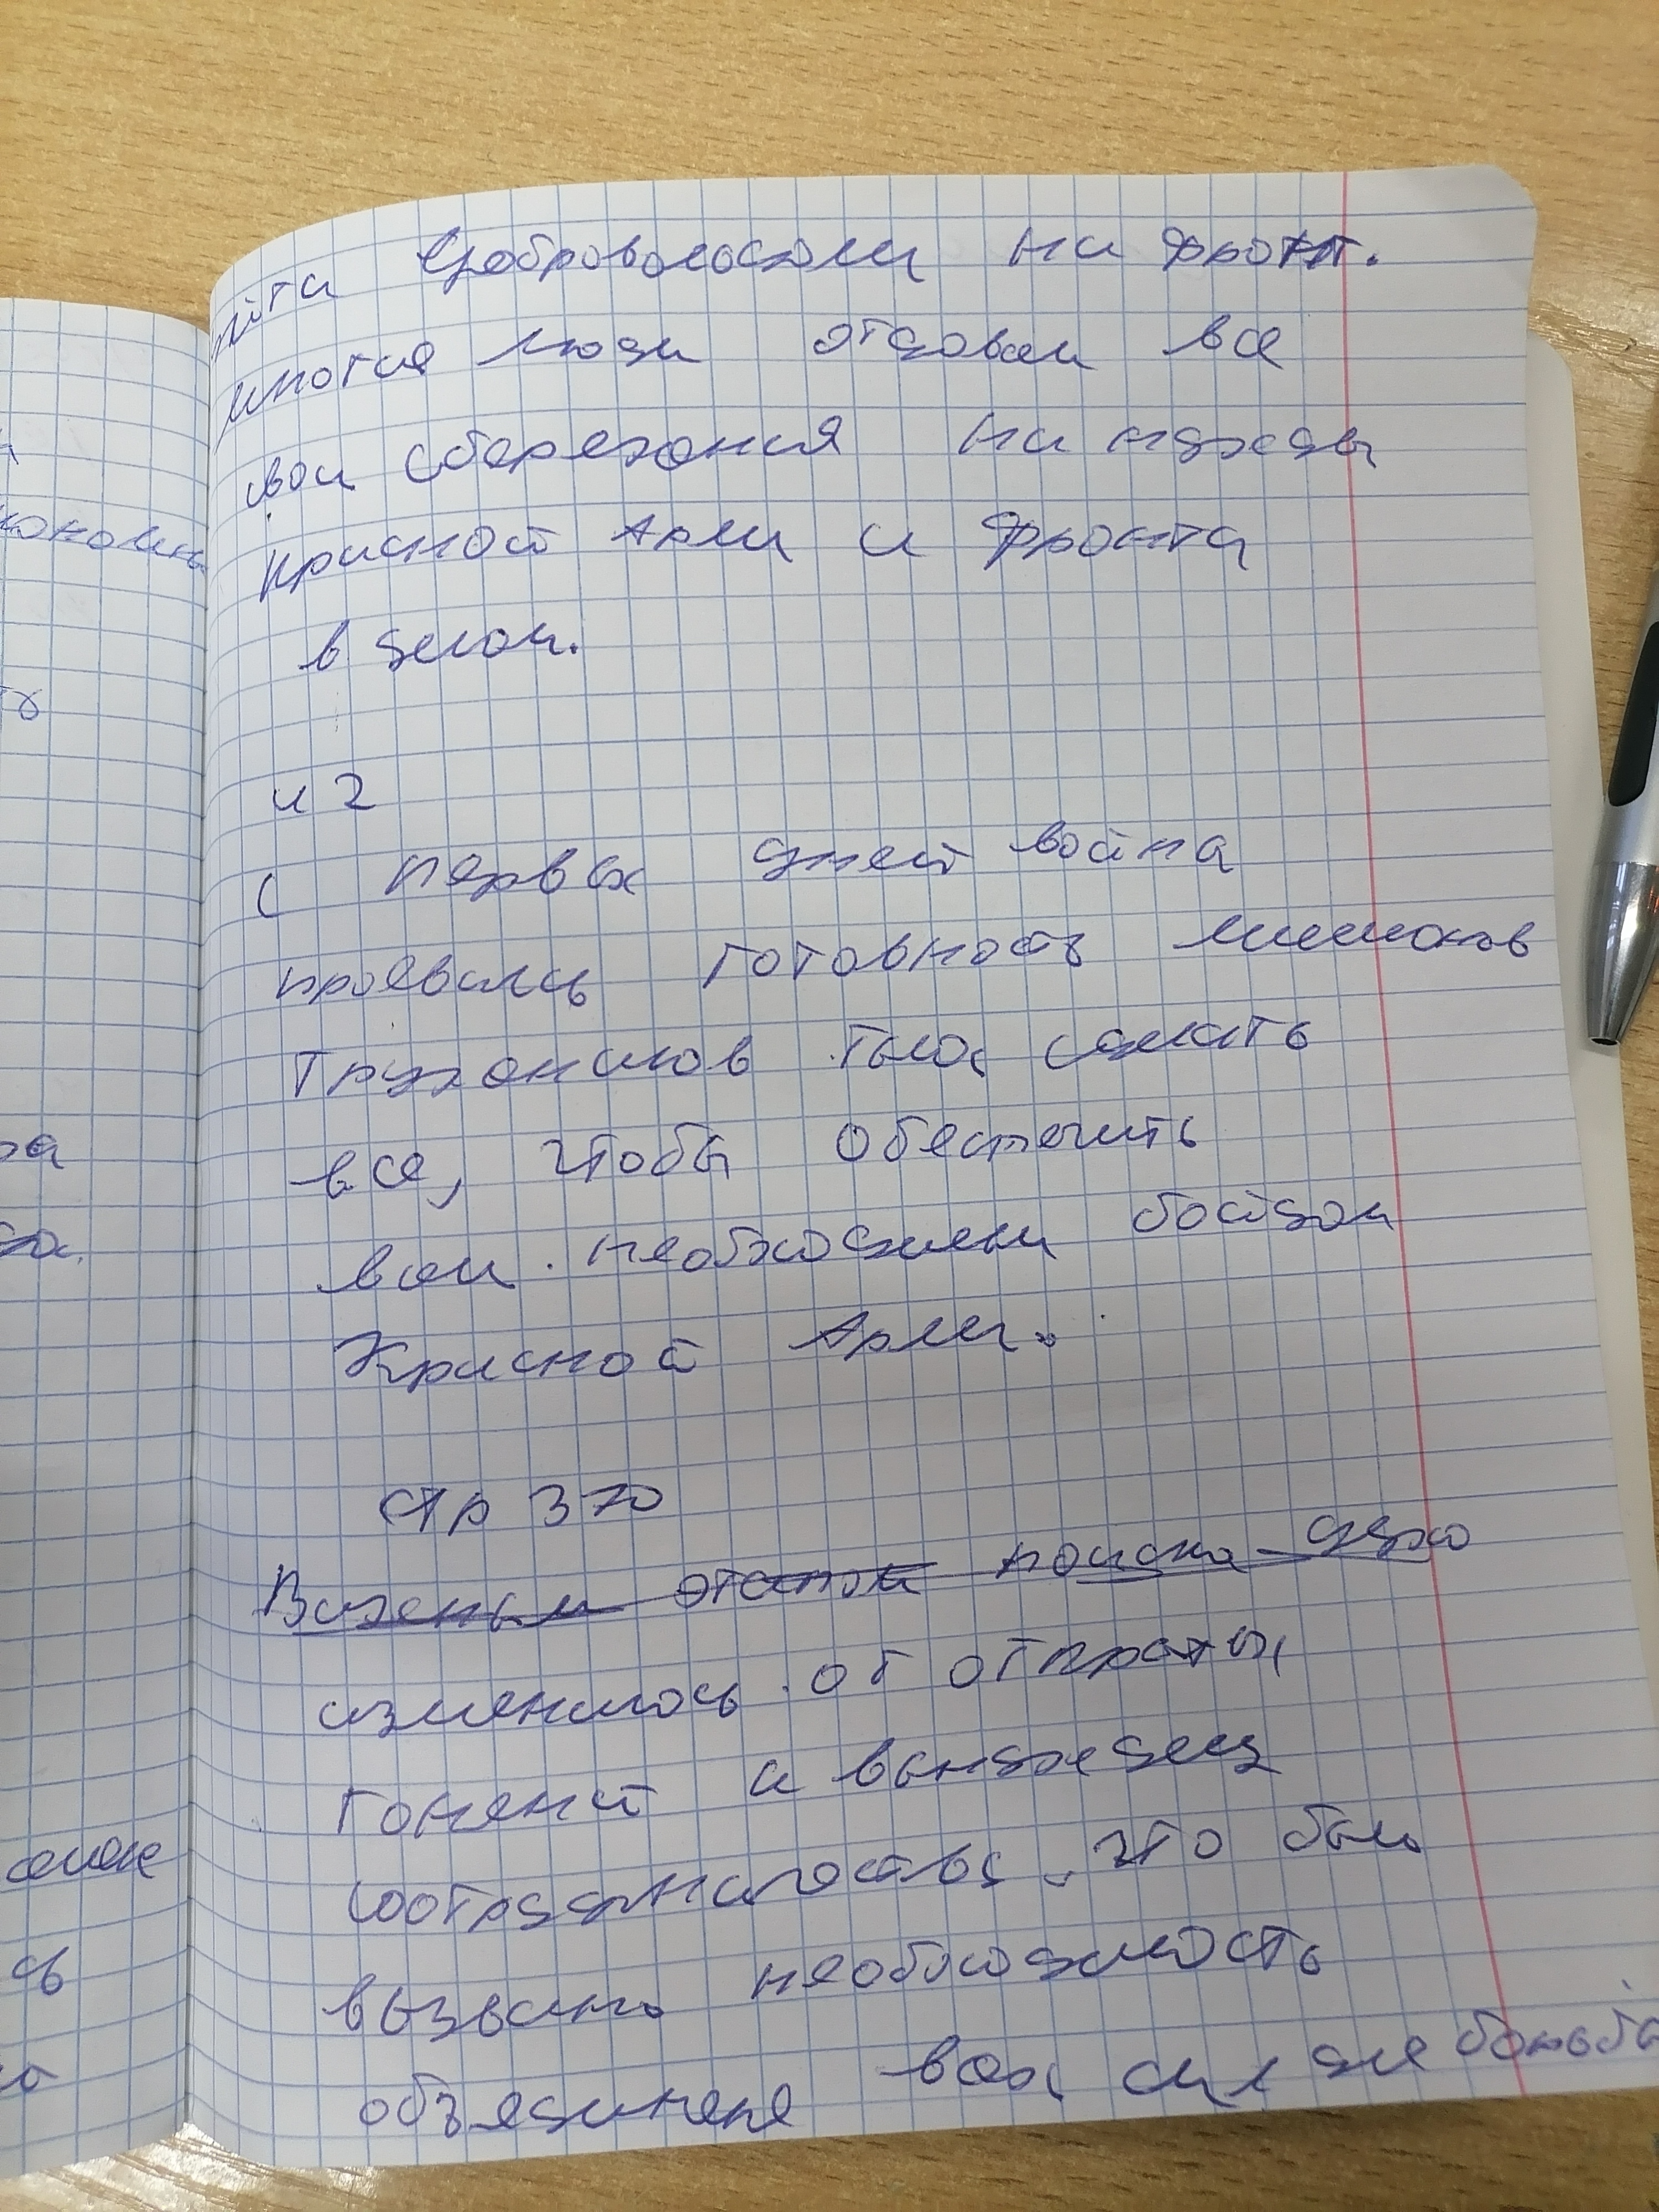 йти добровольсом на фронт.
многие люди отдовали все
свои сбережения на нужды
красной Арми и фронта
в целом.
и 2
с первых дней война
проевилсь готовность милионов
тружоников тыла сделать
все, чтобы обеспечить
всем необходимым бойцом
Красной Арми.
стр 370
Важеным этапом поиска
изменилось от открытых
гонений и вынужденц
сотрудничества, что было
вызвано необходимость
объединене всех сил для борьбы
кономи
ть
ра
сь